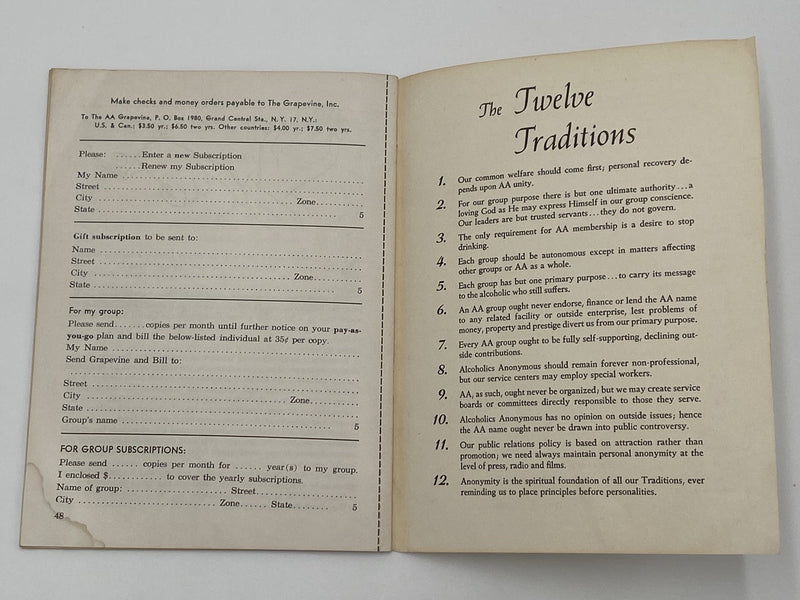 Make checks and money orders payable to The Grapevine, Inc.
To The AA Grapevine, P. O. Box 1980, Grand Central Sta., N. Y. 17, N.Y.:
U. S. & Can.; $3.50 yr.; $6.50 two yrs. Other countries: $4.00 yr.; $7.50 two yrs.
Please: ......Enter a new Subscription
......Renew my Subscription
My Name ..........
Street ..........
City .......... Zone..........
State .......... 5
Gift subscription to be sent to:
Name ..........
Street ..........
City .......... Zone..........
State .......... 5
For my group:
Please send.......copies per month until further notice on your pay-as-
you-go plan and bill the below-listed individual at 35¢ per copy.
My Name ..........
Send Grapevine and Bill to:
..........
Street ..........
City .......... Zone..........
State ..........
Group's name .......... 5
FOR GROUP SUBSCRIPTIONS:
Please send ...... copies per month for ...... year(s) to my group.
I enclosed $............ to cover the yearly subscriptions.
Name of group: .......... Street..........
City .......... Zone...... State........ 5
48
The Twelve
Traditions
1. Our common welfare should come first; personal recovery de-
pends upon AA unity.
2. For our group purpose there is but one ultimate authority...a
loving God as He may express Himself in our group conscience.
Our leaders are but trusted servants...they do not govern.
3. The only requirement for AA membership is a desire to stop
drinking.
4. Each group should be autonomous except in matters affecting
other groups or AA as a whole.
5. Each group has but one primary purpose...to carry its message
to the alcoholic who still suffers.
6. An AA group ought never endorse, finance or lend the AA name
to any related facility or outside enterprise, lest problems of
money, property and prestige divert us from our primary purpose.
7. Every AA group ought to be fully self-supporting, declining out-
side contributions.
8. Alcoholics Anonymous should remain forever non-professional,
but our service centers may employ special workers.
9. AA, as such, ought never be organized; but we may create service
boards or committees directly responsible to those they serve.
10. Alcoholics Anonymous has no opinion on outside issues; hence
the AA name ought never be drawn into public controversy.
11. Our public relations policy is based on attraction rather than
promotion; we need always maintain personal anonymity at the
level of press, radio and films.
12. Anonymity is the spiritual foundation of all our Traditions, ever
reminding us to place principles before personalities.